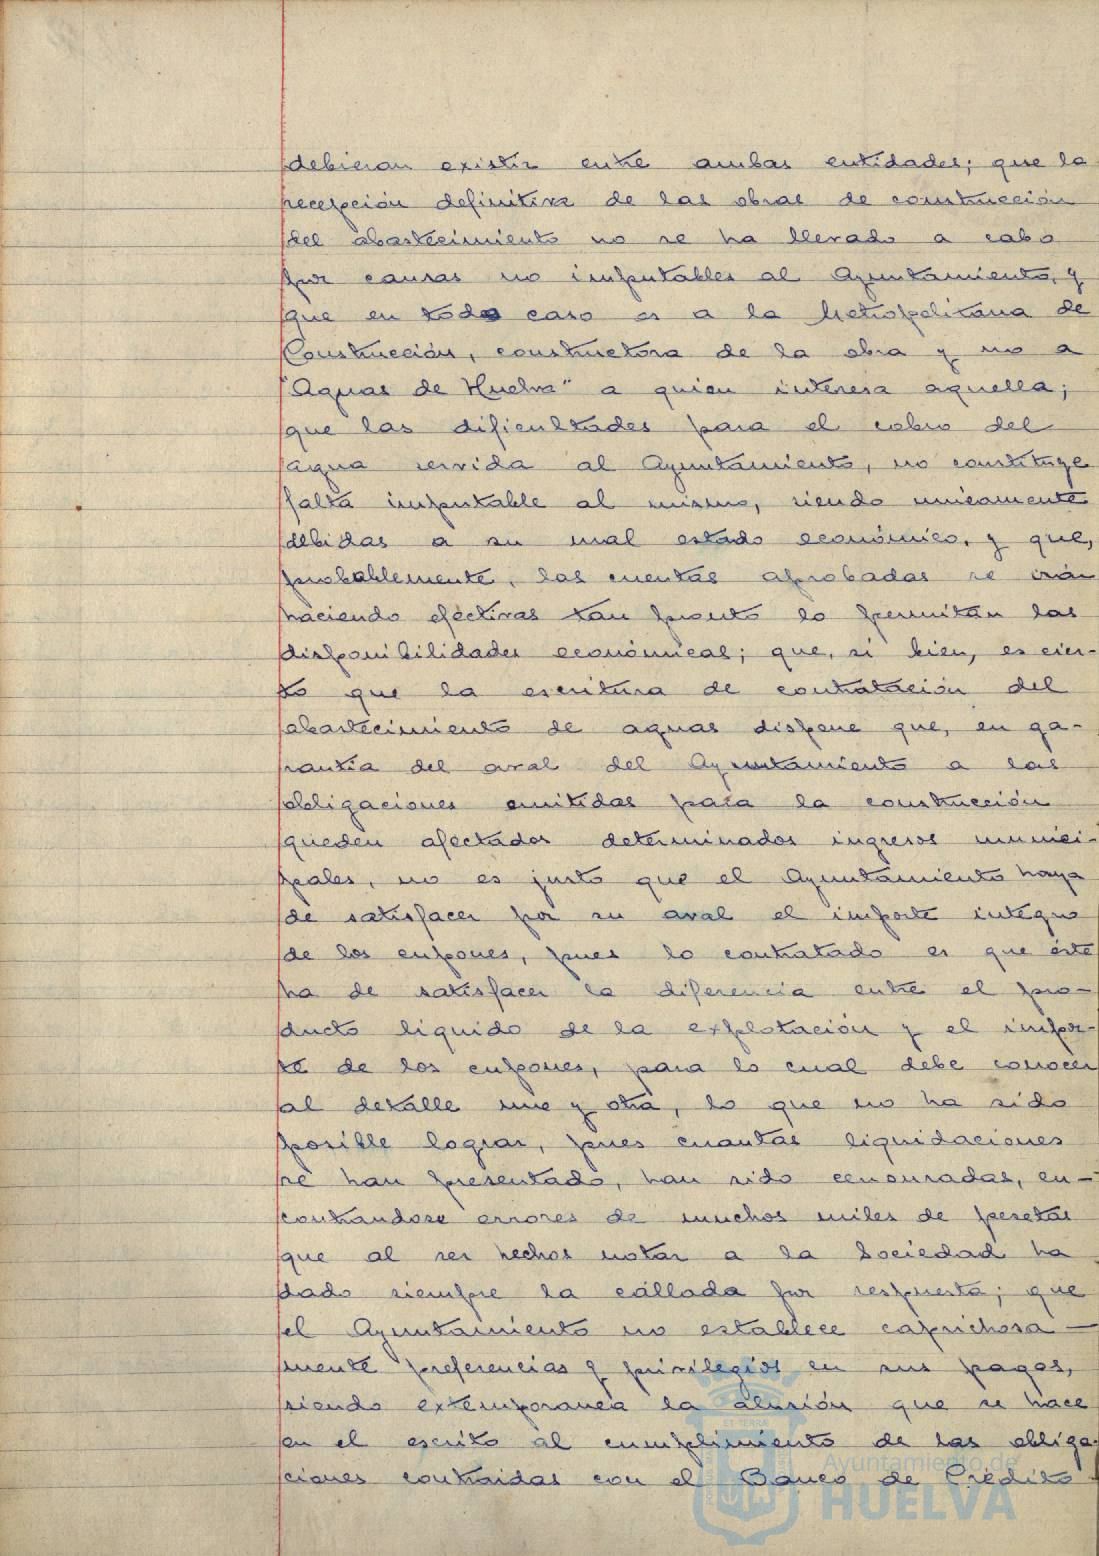 debieran existir entre ambas entidades; que la
recepción definitiva de las obras de construcción
del abastecimiento no se ha llevado a cabo
por causas no imputables al Ayuntamiento, y
que en todo caso es a la Metropolitana de
Construcción, constructora de la obra y no a
"Aguas de Huelva" a quien interesa aquella;
que las dificultades para el cobro del
agua servida al Ayuntamiento, no constituye
falta imputable al mismo, siendo unicamente
debidas a su mal estado económico, y que,
probablemente, las cuentas aprobadas se irán
haciendo efectivas tan pronto lo permitan las
disponibilidades económicas; que, si bien, es cier-
to que la escritura de contratación del
abastecimiento de aguas dispone que, en ga-
rantia del aval del Ayuntamiento a las
obligaciones emitidas para la construcción
queden afectados determinados ingresos munici-
pales, no es justo que el Ayuntamiento haya
de satisfacer por su aval el importe integro
de los cupones, pues lo contratado es que éste
ha de satisfacer la diferencia entre el pro-
ducto liquido de la explotación y el impor-
te de los cupones, para lo cual debe conocer
al detalle uno y otra, lo que no ha sido
posible lograr, pues cuantas liquidaciones
se han presentado, han sido censuradas, en-
contrandose errores de muchos miles de pesetas
que al ser hechos notar a la Sociedad ha
dado siempre la callada por respuesta; que
el Ayuntamiento no establece caprichosa-
mente preferencias y privilegios en sus pagos,
siendo extemporanea la alusión que se hace
en el escrito al cumplimiento de las obliga-
ciones contraidas con el Banco de Crédito
Ayuntamiento de
HUELVA